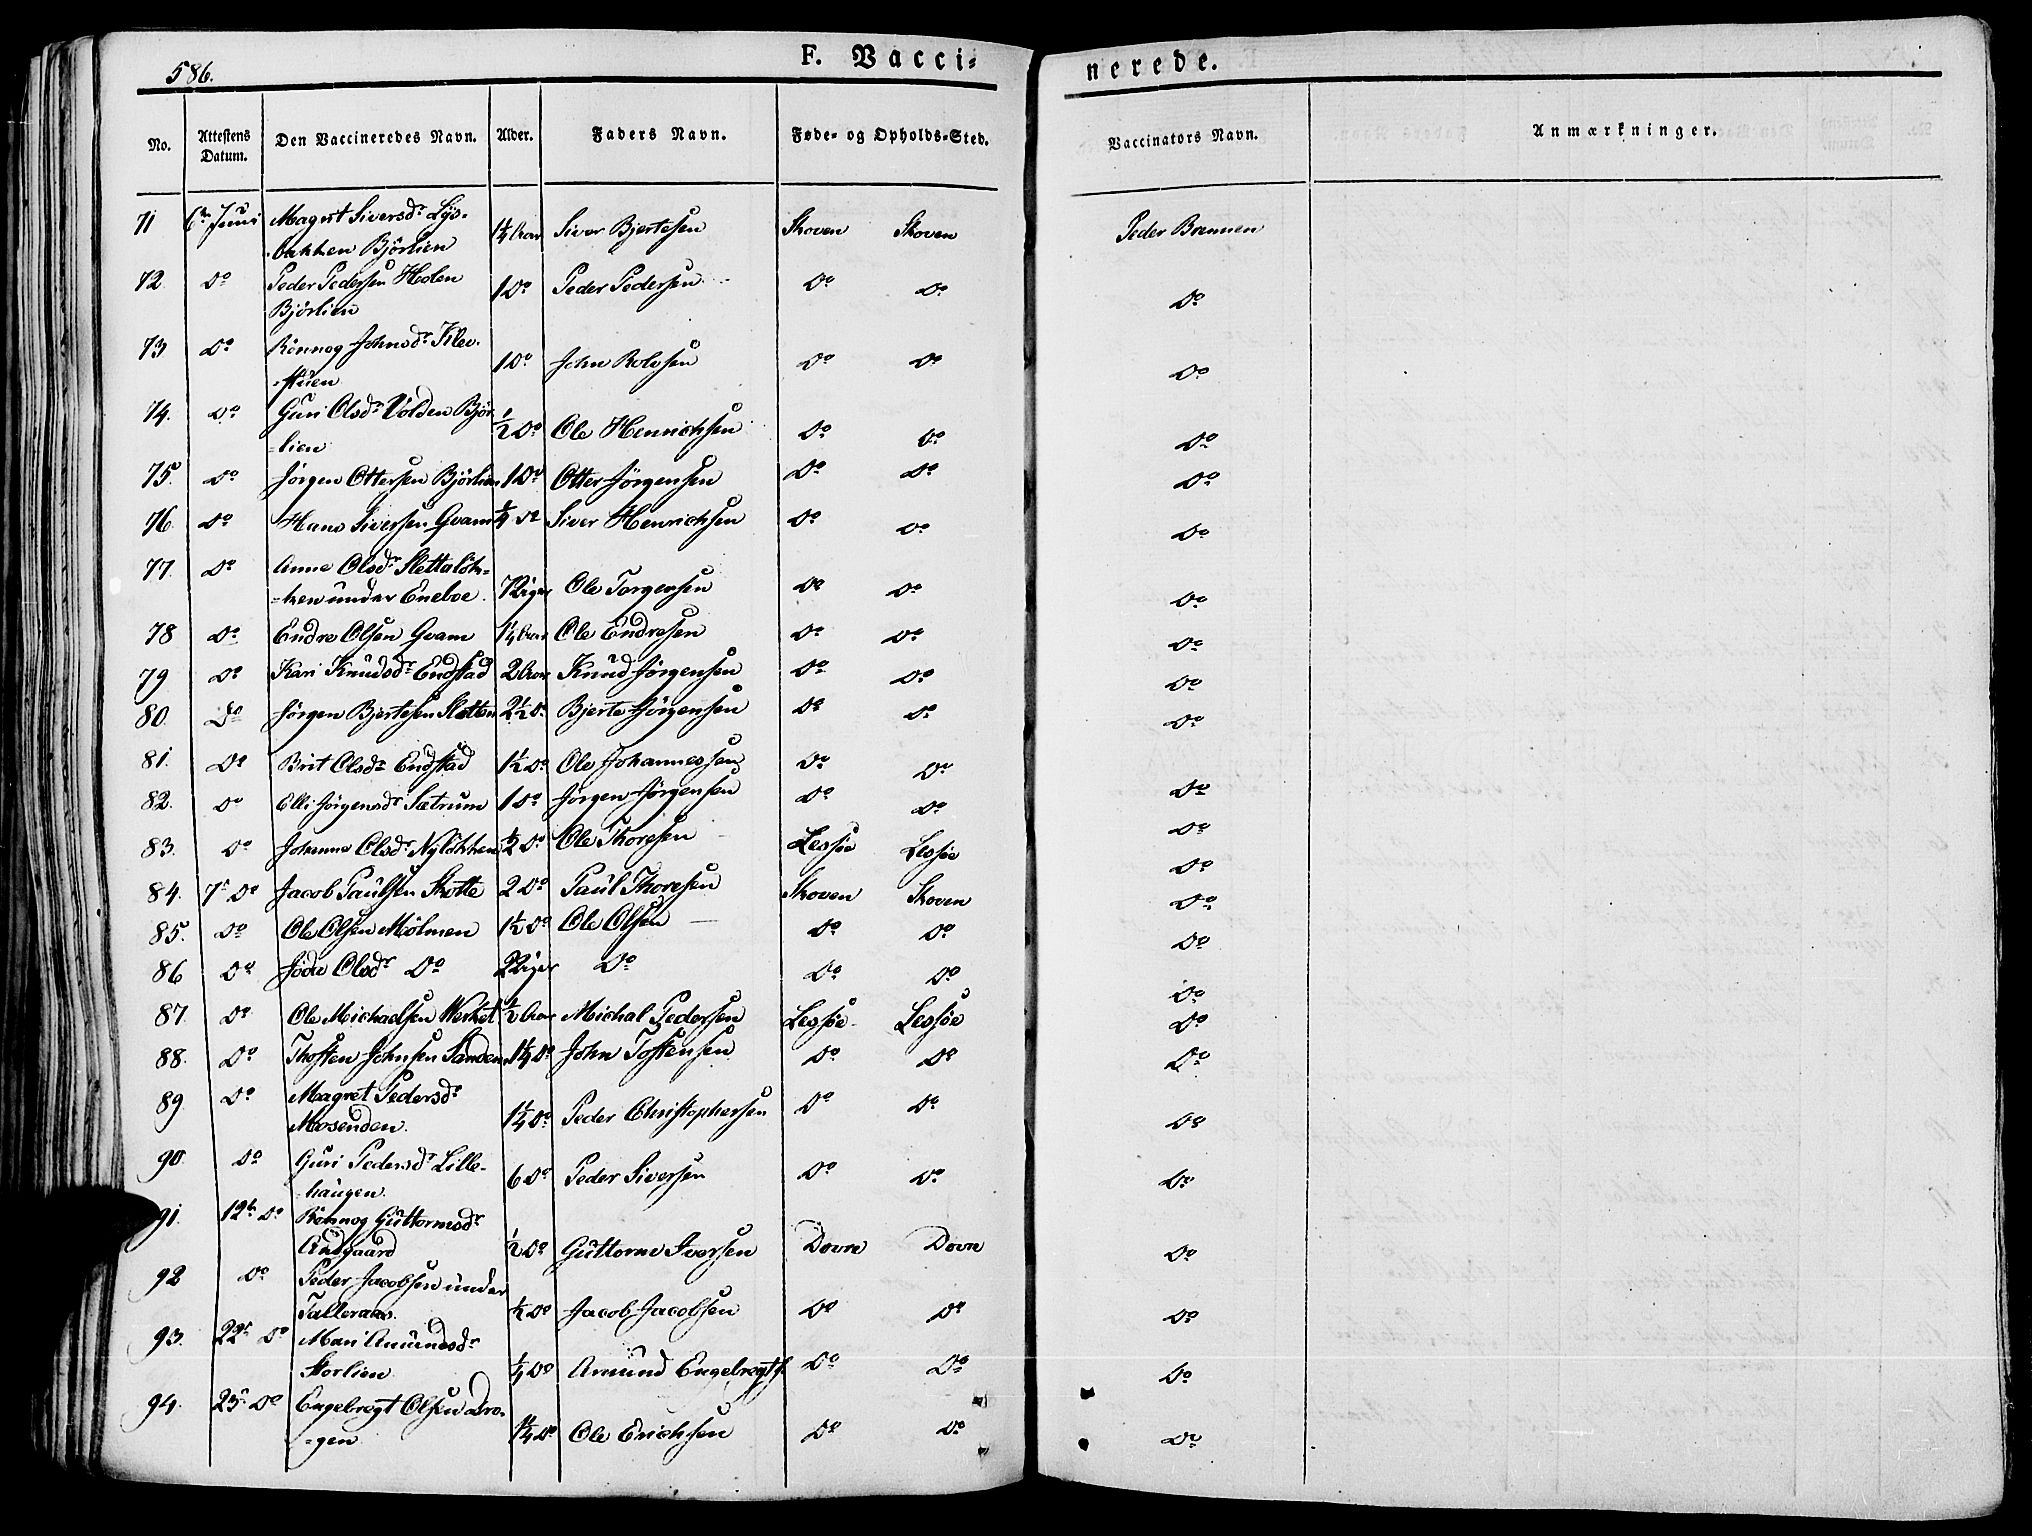 586.
F. Vacci-
nerede.
No. Attestens Datum. Den Vaccineredes Navn. Alder. Faders Navn. Føde- og Opholds-Sted. Vaccinators Navn. Anmærkninger.
71 6te Juni Magrit Siversdr Lys- 1¼ Aar Siver Bjertesen Skoven Skoven Peder Brennen
bakken Bjørlien
72. Do Peder Pedersen Holen 1 Do Peder Pedersen Do Do Do
Bjørlien
73 Do Rönnog Johnsdr Klev- 1 Do John Rolvsen Do Do Do
stuen
74. Do Guri Olsdr Volden Bjør- ½ Do Ole Henrichsen Do Do Do
lien
75. Do Jørgen Ottersen Bjørlien 1 Do Otter Jørgensen Do Do Do
76. Do Hans Siversen Qvam ¼ Do Siver Henrichsen Do Do Do
77. Do Anne Olsdr Slettaløk- 7 Uger Ole Torgersen Do Do Do
ken under Eneboe
78 Do Endre Olsen Qvam 1¼ Aar Ole Endresen Do Do Do
79 Do Kari Knudsdr Endstad 2 Aar Knud Jørgensen Do Do Do
80. Do Jørgen Bjertesen Sletten 2½ Do Bjerte Jørgensen Do Do Do
81. Do Brit Olsdr Endstad 1½ Do Ole Johannessen Do Do Do
82. Do Elli Jörgensdr Sætrum 1 Do Jørgen Jørgensen Do Do Do
83. Do Johanna Olsdr Nyløkken ½ Do Ole Thoresen Lessøe Lessøe Do
84. 7de Do Jacob Paulsen Skotte 2 Do Paul Thoresen Skoven Skoven Do
85. Do Ole Olsen Mølmen 1½ Do Ole Olsen Do Do Do
86 Do Olsdr Do Uger Do Do Do Do
87. Do Ole Michaelsen Werket ½ Aar Michal Pedersen Lessøe Lessøe Do
88. Do Thosten Johnsen Sanden 1¼ Do John Tostensen Do Do Do
89 Do Magret Pedersdr 1¼ Do Peder Christophersen Do Do Do
Mosenden.
90. Do Guri Pedersdr Lille- 6 Do Peder Siversen Do Do Do
haugen.
91. 12te Do Rönnog Guttormsdr ½ Do Guttorm Iversen Dovre Dovre Do
Audgaard
92 Do Peder Jacobsen under ½ Do Jacob Jacobsen Do Do Do
Talleraas.
93. 22de Do Mari Amundsdr ¼ Do Amund Engebregts. Do Do Do
Storlien
94. 23de Do Engebregt Olsen Bro- 1¼ Do Ole Erichsen Do Do Do
gen